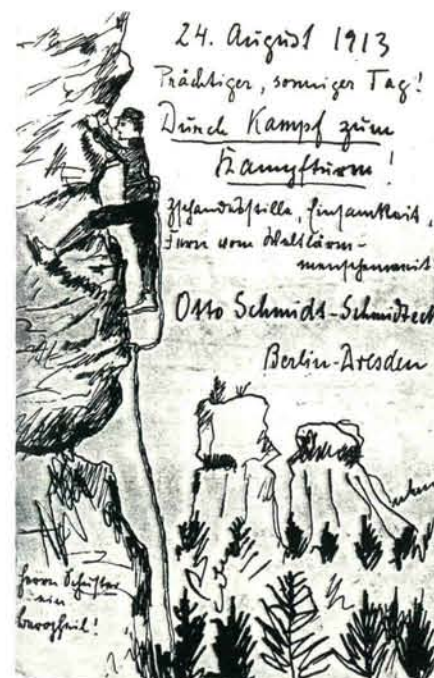 24. August 1913
Prächtiger, sonniger Tag!
Durch Kampf zum
Kampfturm!
Einsamkeit,
Fern vom Weltlärm-
menschenweit
Otto Schmidt-Schmidteck
Berlin-Dresden
Herrn Schuster
ein
Bergheil!